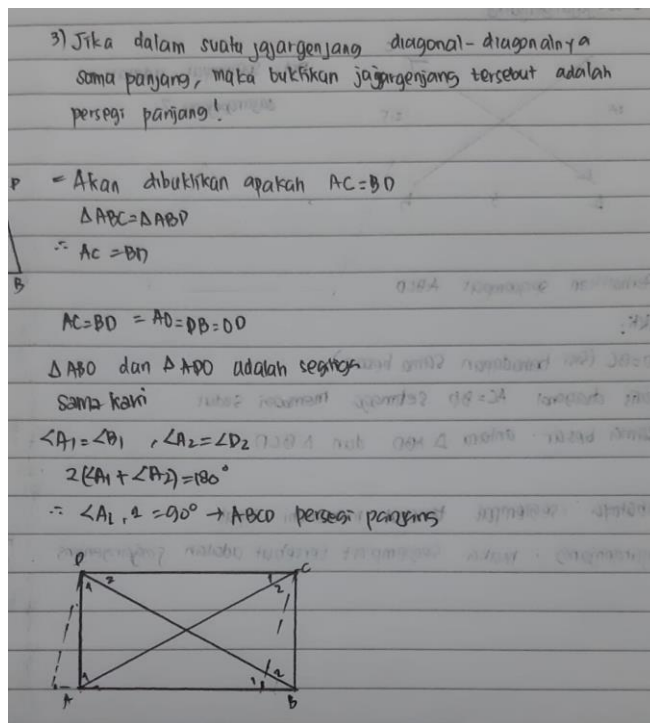 3) Jika dalam suatu jajargenjang diagonal-diagonalnya
sama panjang, maka buktikan jajargenjang tersebut adalah
persegi panjang!
P
= Akan dibuktikan apakah AC=BD
∆ABC=∆ABD
∴ AC=BD
B
AC=BD = AO=OB=OD
∆ABO dan ∆ADO adalah segitiga
sama kaki
∠A1=∠B1 , ∠A2=∠D2
2(∠A1+∠A2)=180°
∴ ∠A1,2=90° → ABCD persegi panjang
D C
1 2 1 2
1 1 2
A B